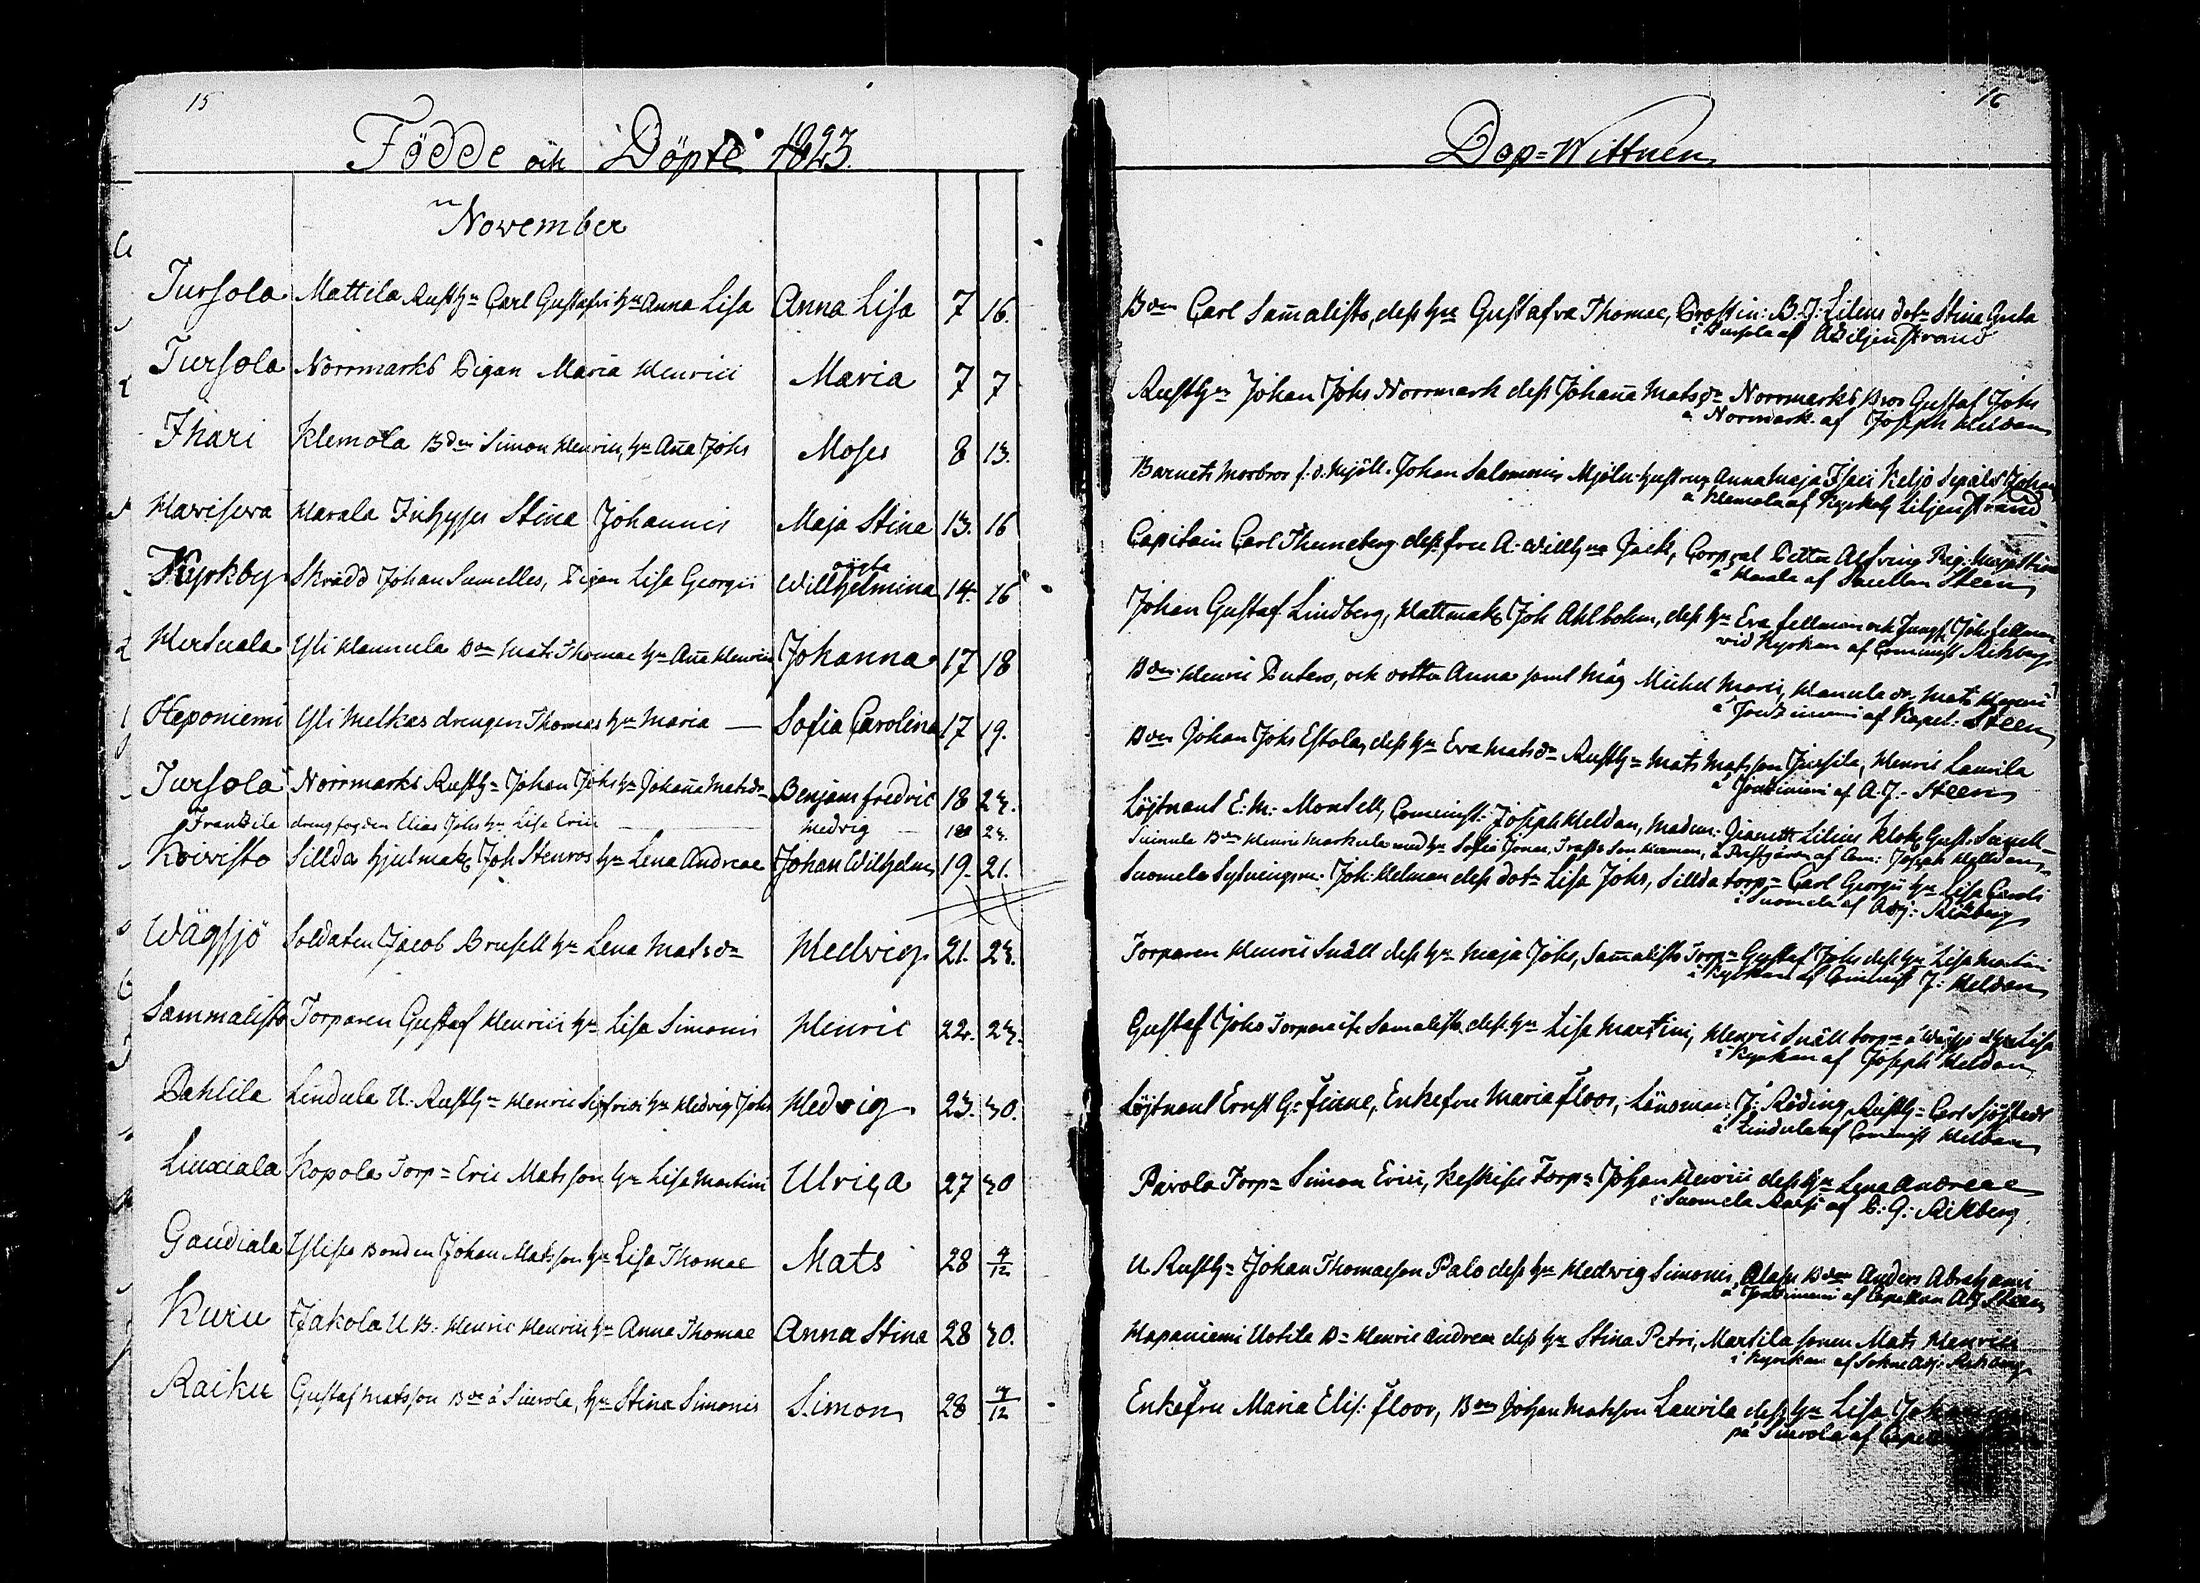 15
Födde och Döpte 1823.
November
Tursola Mattila Rusth:n Carl Gustafss h:u Anna Lisa Anna Lisa 7 16.
Tursola Norrmarks Pigan Maria Henrici Maria 7 7
Ihari Klemola B:den Simon Henrici, h:u Aña Johs Moses 8 13.
Hawiserva Harala Inhyses Stina Johannis Maja Stina 13. 16
Kyrkby Skrädd Johan Sumelles, Pigan Lisa Georgii oägta Willhelmina 14. 16
Hersuala Yli Hannula B:den Mats Thomae h:u Aña Henrici Johanna 17 18
Haponiemi Yli Melkas drengen Thomas h:u Maria — Sofia Carolina 17 19.
Tursola Norrmarks Rusth:n Johan Johs h:u Johaña Matsd:r Benjam fredric 18 23.
Frantzila drengfogden Elias Johs h:u Lisa Erici Hedvig 18 23.
Koivisto Sillda hjulmak: Joh Stenros h:u Lena Andreae Johan Wilhelm 19. 21.
Wägsjö Soldaten Jacob Brusell h:u Lena Matsd:r Hedvig 21. 23.
Sammalisto Torparen Gustaf Henrici h:u Lisa Simonis Henric 22. 23.
Pahlila Lindula U. Rusth:n Henric Sigfrici h:u Hedvig Johs Hedvig 23. 30.
Liuxiala Kopola Torp:n Eric Matsson h:u Lisa Martini Ulrica 27 30
Gaudiala Ylisse Bonden Johan Matsson h:u Lisa Thomae Mats 28 4/12
Kuru Jakola U B. Henric Henrici h:u Anna Thomae Anna Stina 28 30.
Raiku Gustaf Matsson B:de å Sierola, h:u Stina Simonis Simon 28 4/12
16
Dop=Wittnen
B:den Carl Sam̄alisto, dess h:u Gustafva Thomae, Probstin: B. J: Lilius dot:r Stina Gusta
i Tursola af A Liljenstrand
Rusth:n Johan Johs Norrmark dess Johaña Matsd:r Norrmarks Bror Gustaf Johs
å Norrmark af Joseph Heldan
Barnets Morbror f. d. Mjöln. Johan Salomonis Mjöln: hustrun Anna Maja Isaci Keljo Sepäls Johan
å Klemola af Kyrkoh Liljenstrand
Capitain Carl Thuneberg dess fru A. Willh:na Jack, Corpral Petter Alfving Pig. Maja Stina
å Harala af Sacellan Steen
Johan Gustaf Lindberg, Hattmak: Joh Ahlbohm, dess h:u Eva fellman och Jungf. Joh: fellman
vid Kyrkan af Comminist Rikberg
B:den Henric Putero, och dotter Anna samt Måg Michel Maris, Hanula dr: Mats Henrici
å Joutzinieni af Kapel: Steen
B:den Johan Johs Estola, dess h:u Eva Matsd:r Rusth:n Mats Matsson Jussila, Henric Laurila
å Joutzinieni af A. J. Steen
Löjtnant E. M. Montell, Comminist: Joseph Heldan, Madem: Jeanette Lilius Klok: Gust. Sumell
Suinula B:den Henric Markula med h:u Sofia Jonae, å Prestgården af Com: Joseph Helldan
Suomela Sytningsm. Joh: Helman dess dot:r Lisa Johs, Sillda torp:n Carl Georgii h:u Lisa Caroli
i Suomela af Adj: Rikberg
Torparen Henric Snäll dess h:u Maja Johs, Sam̄alisto Torp:n Gustaf Johs dess h:u Lisa Martini
i Kyrkan af Comminist J: Heldan
Gustaf Johs Torpare ifr Samalisto, dess h:u Lisa Martini, Henric Snäll torp:n å Wägsjö d. h:u Lisa
i Kyrkan af Joseph Heldan
Löjtnant Ernst G:n finne, Enkefru Maria floor, Länsman: J: Röding, Rusth:n Carl Sjöstedt
å Lindula af Comminist Heldan
Pavola Torp:n Simon Erici, Keskisse Torp:n Johan Henrici dess h:u Lena Andreae
i Suomela af C: G: Rikberg
U Rusth:n Johan Thomaeson Palo dess h:u Hedwig Simonis, Alase B:den Anders Abrahami
å Joutzinieni af Capellan AJ Steen
Hapaniemi Uotila B:n Henric Andreae dess h:u Stina Petri, Marsila sonen Mats Henrici
i Kyrkan af Sokne Adj: Rikberg
Enkefru Maria Elis: floor, B:den Johan Matsson Laurila dess h:u Lisa
på Sierola af